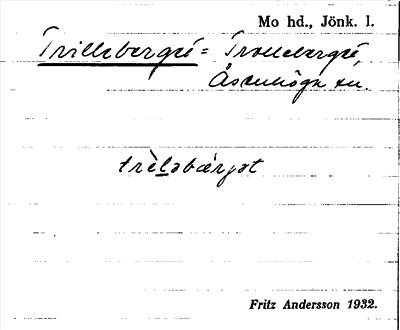 Mo hd., Jönk. l.
Trilleberget = Trolleberget,
Åsenhöga sn.
trὲl̲əbærjət
Fritz Andersson 1932.